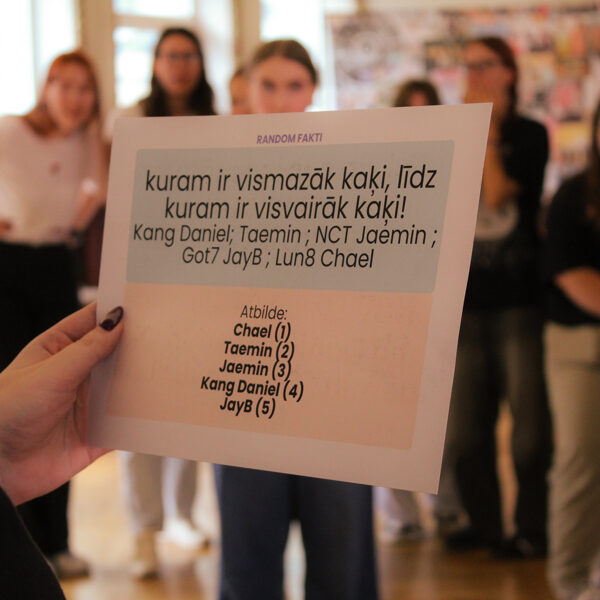 RANDOM FAKTI
kuram ir vismazāk kaķi, līdz
kuram ir visvairāk kaķi!
Kang Daniel; Taemin ; NCT Jaemin ;
Got7 JayB ; Lun8 Chael
Atbilde:
Chael (1)
Taemin (2)
Jaemin (3)
Kang Daniel (4)
JayB (5)